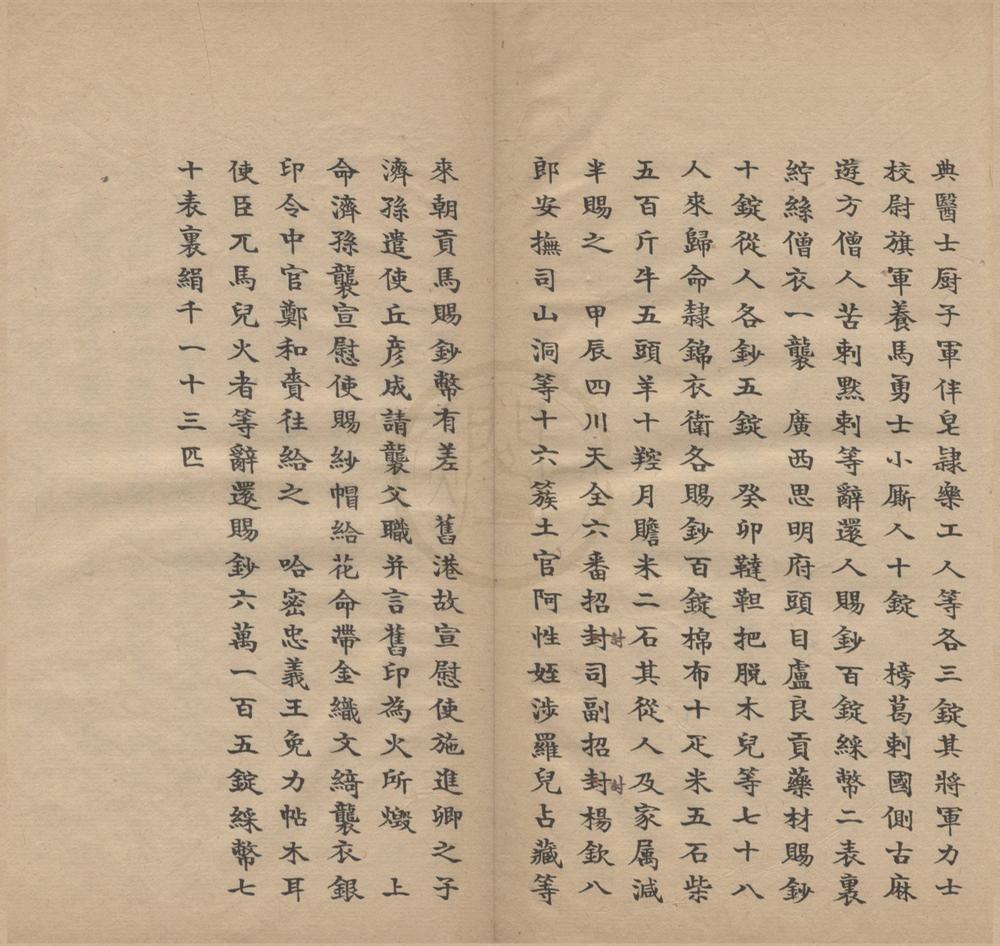 典醫士厨子軍伴皂隸樂工人等各三錠其將軍力士
校尉旗軍養馬勇士小厮人十錠　榜葛剌國側古麻
遊方僧人苦剌黙剌等辭還人賜鈔百錠綵幣二表裏
紵絲僧衣一襲　廣西思明府頭目盧良貢藥材賜鈔
十錠從人各鈔五錠　癸卯韃靼把脱木兒等七十八
人來歸命隸錦衣衛各賜鈔百錠棉布十疋米五石柴
五百斤牛五頭羊十羫月贍米二石其從人及家属減
半賜之　甲辰四川天全六番招封討司副招封討楊欽八
郎安撫司山洞等十六簇土官阿性姪涉羅兒占藏等
來朝貢馬賜鈔幣有差　舊港故宣慰使施進卿之子
濟孫遣使丘彦成請襲父職并言舊印為火所燬　上
命濟孫襲宣慰使賜紗帽給花命帶金織文綺襲衣銀
印令中官鄭和賫往給之　哈密忠義王免力帖木耳
使臣兀馬兒火者等辭還賜鈔六萬一百五錠綵幣七
十表裏絹千一十三匹